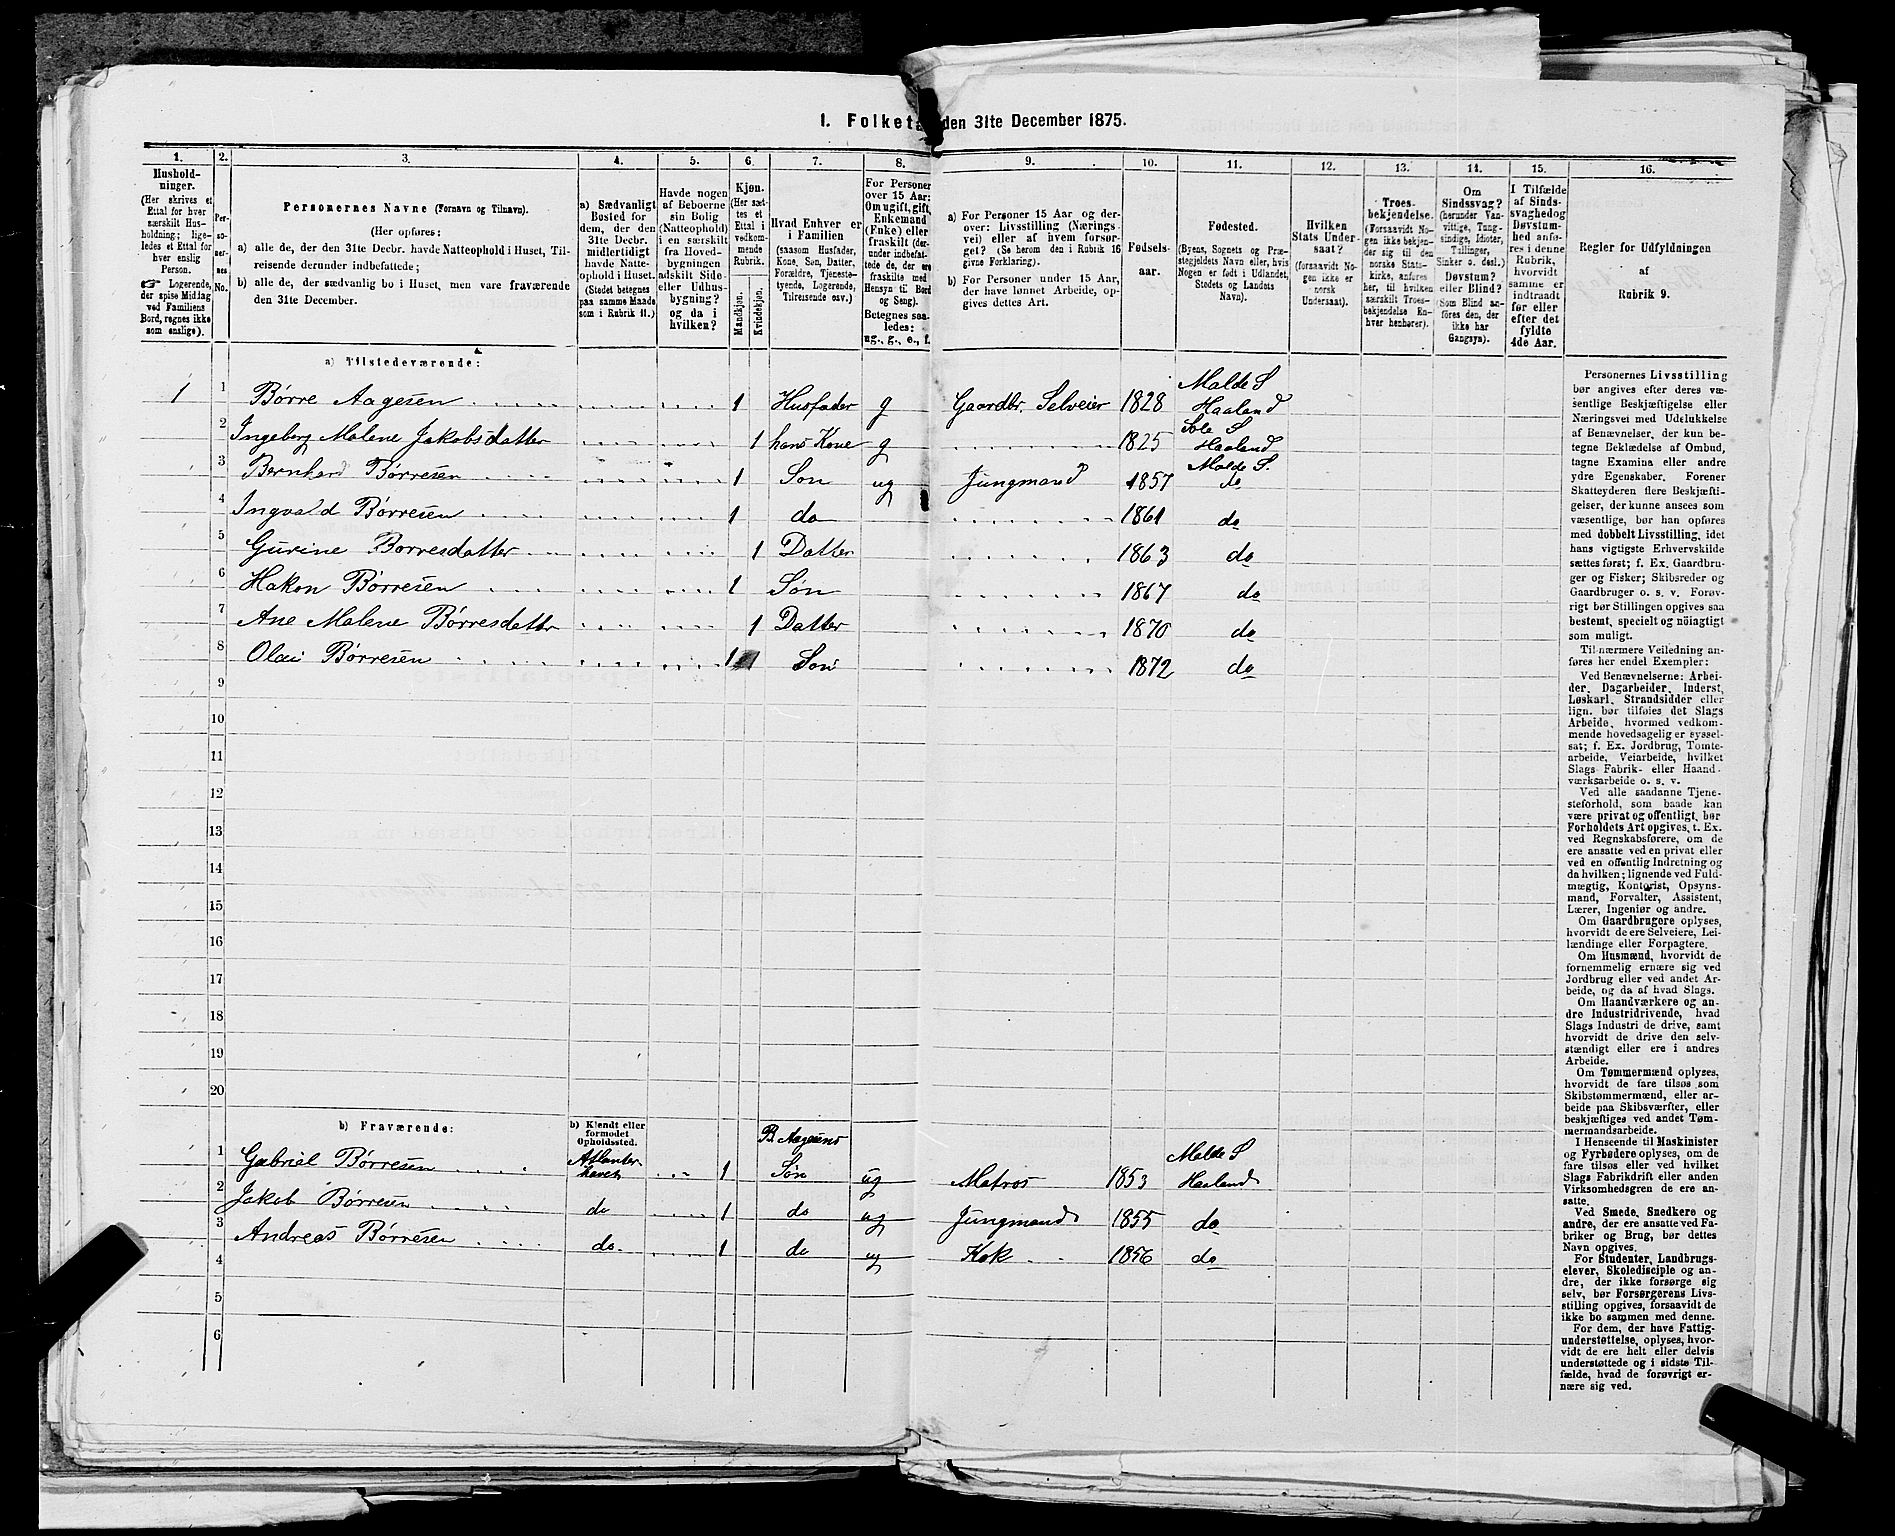 1. Folket den 31te December 1875.
1. 2. 3. 4. 5. 6. 7. 8. 9. 10. 11. 12. 13. 14. 15. 16.
Hushold-
ninger.
(Her skrives et
Ettal for hver
særskilt Hus-
holdning; lige-
ledes et Ettal for
hver enslig
Person.
☞ Logerende,
der spise Middag
ved Familiens
Bord, regnes ikke
som enslige).
Per-
so-
ner-
nes
No.
Personernes Navne (Fornavn og Tilnavn).
(Her opføres:
a) alle de, der den 31te Decbr. havde Natteophold i Huset, Til-
reisende derunder indbefattede;
b) alle de, der sædvanlig bo i Huset, men vare fraværende
den 31te December.
a) Sædvanligt
Bosted for
dem, der den
31te Decbr.
midlertidigt
havde Natte-
ophold i Huset.
(Stedet betegnes
paa samme Maade
som i Rubrik 11.)
Havde nogen
af Beboerne
sin Bolig
(Natteophold)
i en særskilt
fra Hoved-
bygningen
adskilt Side-
eller Udhus-
bygning?
og da i
hvilken?
Kjøn.
(Her sæt-
tes et
Ettal i
vedkom-
mende
Rubrik.
Mandkjøn.
Kvindekjøn.
Hvad Enhver er
i Familien
(saasom Husfader,
Kone, Søn, Datter,
Forældre, Tjeneste-
tyende, Logerende,
Tilreisende osv.)
For Personer
over 15 Aar:
Om ugift, gift,
Enkemand
(Enke) eller
fraskilt (der-
under indbefat-
tede de, der ere
fraskilte med
Hensyn til Bord
og Seng).
Betegnes saa-
ledes:
ug., g., e., f.
a) For Personer 15 Aar og der-
over: Livsstilling (Nærings-
vei) eller af hvem forsør-
get? (Se herom den i Rubrik 16
givne Forklaring).
b) For Personer under 15 Aar,
der have lønnet Arbeide, op-
gives dettes Art.
Fødsels-
aar.
Fødested.
(Byens, Sognets og Præ-
stegjeldets Navn eller, hvis
Nogen er født i Udlandet,
Stedets og Landets
Navn).
Hvilken
Stats Under-
saat?
(forsaavidt No-
gen ikke er
norsk
Undersaat).
Troes-
bekjendelse.
(Forsaavidt No-
gen ikke bekjen-
der sig til den
norske Stats-
kirke, anføres
her, til hvilken
særskilt Troes-
bekjendelse En-
hver henhører).
Om
Sindssvag?
(herunder Van-
vittige, Tung-
sindige, Idioter,
Tillinger,
Sinker o. desl.)
Døvstum?
eller Blind?
(Som Blind an-
føres den, der
ikke har
Gangsyn).
I Tilfælde
af Sinds-
svaghed og
Døvstum-
hed anfø-
res i denne
Rubrik,
hvorvidt
samme er
indtraadt
før eller
efter det
fyldte
4de Aar.
Regler for Udfyldningen
af
Rubrik 9.
a) Tilstedeværende:
1 1 Børre Aagesen 1 Husfader g Gaardbr. Selveier 1828 Malde S Haaland
2 Ingeberg Malene Jakobsdatter 1 hans Kone g 1825 Sole S Haaland
3 Bernhard Børresen 1 Søn ug Jungmand 1857 Malde S. do
4 Ingvald Børresen 1 do 1861 do
5 Gurine Børresdatter 1 Datter 1863 do
6 Hakon Børresen 1 Søn 1867 do
7 Ane Malene Børresdatter 1 Datter 1870 do
8 Olai Børresen 1 1 Søn 1872 do
9
10
11
12
13
14
15
16
17
18
19
20
b) Fraværende:
b) Kjendt eller
formodet
Opholdssted.
B. Aagesens
1 Gabriel Børresen Atlanterhavet 1 Søn ug Matros 1853 Malde S Haaland
2 Jakob Børresen do 1 do ug Jungmand 1855 do
3 Andreas Børresen do. 1 do ug Kok 1856 do
4
5
6
Personernes Livsstilling
bør angives efter deres væ-
sentlige Beskjæftigelse eller
Næringsvei med Udelukkelse
af Benævnelser, der kun be-
tegne Beklædelse af Ombud,
tagne Examina eller andre
ydre Egenskaber. Forener
Skatteyderen flere Beskjæfti-
gelser, der kunne ansees som
væsentlige, bør han opføres
med dobbelt Livsstilling, idet
hans vigtigste Erhvervskilde
sættes først; f. Ex. Gaardbru-
ger og Fisker; Skibsreder og
Gaardbruger o. s. v. Forøv-
rigt bør Stillingen opgives saa
bestemt, specielt og nöiagtigt
som muligt.
Til nærmere Veiledning an-
føres her endel Exempler:
Ved Benævnelserne: Arbei-
der, Dagarbeider, Inderst,
Løskarl, Strandsidder eller
lign. bør tilføies det Slags
Arbeide, hvormed vedkom-
mende hovedsagelig er syssel-
sat; f. Ex. Jordbrug, Tomte-
arbeide, Veiarbeide, hvilket
Slags Fabrik- eller Haand-
værksarbeide o. s. v.
Ved alle saadanne Tjene-
steforhold, som baade kan
være privat og offentligt, bør
Forholdets Art opgives, t. Ex.
ved Regnskabsførere, om de
ere ansatte ved en privat eller
ved en offentlig Indretning og
da hvilken; lignende ved Fuld-
mægtig, Kontorist, Opsyns-
mand, Forvalter, Assistent,
Lærer, Ingeniør og andre.
Om Gaardbrugere oplyses,
hvorvidt de ere Selveiere, Lei-
lændinge eller Forpagtere.
Om Husmænd, hvorvidt de
fornemmelig ernære sig ved
Jordbrug eller ved andet Ar-
beide, og da af hvad Slags.
Om Haandværkere og an-
dre Industridrivende, hvad
Slags Industri de drive, samt
hvorvidt de drive den selv-
stændigt eller ere i andres
Arbeide.
Om Tømmermænd oplyses,
hvorvidt de fare tilsøs som
Skibstømmermænd, eller ar-
beide paa Skibsværfter, eller
beskjæftiges ved andet Tøm-
mermandsarbeide.
I Henseende til Maskinister
og Fyrbødere oplyses, om de
fare tilsøs eller ved hvilket
Slags Fabrikdrift eller anden
Virksomhedsgren de ere an-
satte.
Ved Smede, Snedkere og
andre, der ere ansatte ved Fa-
briker og Brug, bør dettes
Navn opgives.
For Studenter, Landbrugs-
elever, Skoledisciple og an-
dre, der ikke forsørge sig
selv, bør Forsørgerens Livs-
stilling opgives, forsaavidt de
ikke bo sammen med denne.
For dem, der have Fattig-
understøttelse, oplyses, hvor-
vidt de ere helt eller delvis
understøttede og i sidste Til-
fælde, hvad de forøvrigt er-
nære sig ved.